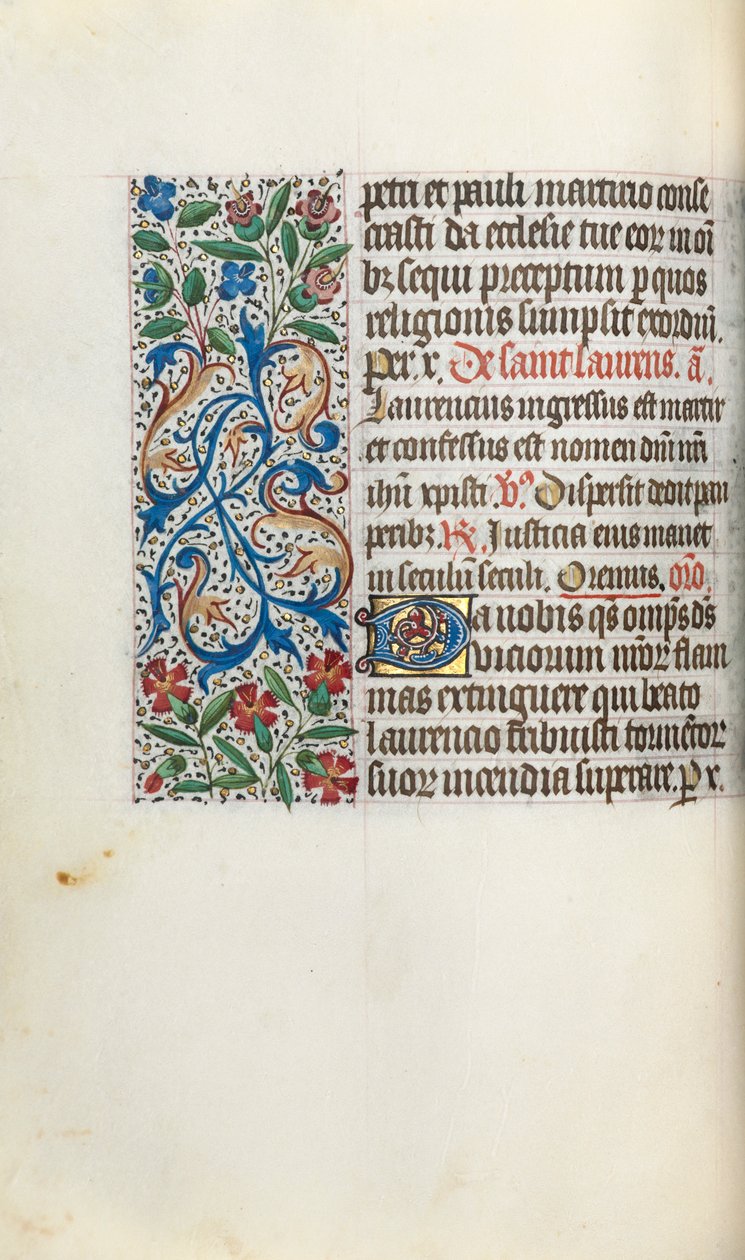 petri et pauli martirio conse
crasti da ecclesie tue eoꝝ in oı̄
bꝫ sequi preceptum ꝑ quos
religionis sumpsit exordiū.
Per. x. De saint laurens. a͞.
Laurencius ingressus est martir
et confessus est nomen dn̄i nr̄i
ihū xpisti. V̄ꝰ Dispersit dedit pau
peribꝫ. ℟. Justicia eius manet
in seculū seculi. Oremus. or̄o.
Da nobis qs̄ omp̄s ds̄
viciorum nr̄oꝝ flam
mas extinguere qui beato
laurencio tribuisti tormētoꝝ
suoꝝ incendia superare. ꝑ x.